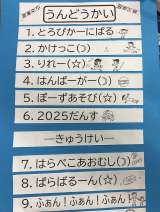 うんどうかい
1. とろぴかーにばる
2. かけっこ(つ)
3. りれー(☆)
4. はんばーがー(つ)
5. ぽーずあそび(☆)
6. 2025だんす
―きゅうけい―
7. はらぺこあおむし(つ)
8. ぱらばるーん(☆)
9. ふぁん!ふぁん!ふぁん!